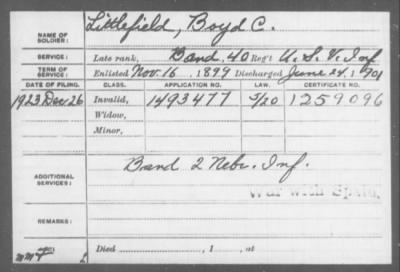 NAME OF SOLDIER: Littlefield, Boyd C.
SERVICE: Late rank, Band, 40 Reg't U. S. V. Inf
TERM OF SERVICE: Enlisted Nov. 16, 1899 Discharged June 24, 1901
DATE OF FILING. CLASS. APPLICATION NO. LAW. CERTIFICATE NO.
1923 Dec 26 Invalid, 1493477 5/20 1259096
Widow,
Minor,
ADDITIONAL SERVICES: Band 2 Nebr. Inf.
War with Spain.
REMARKS:
Died , 1 , at